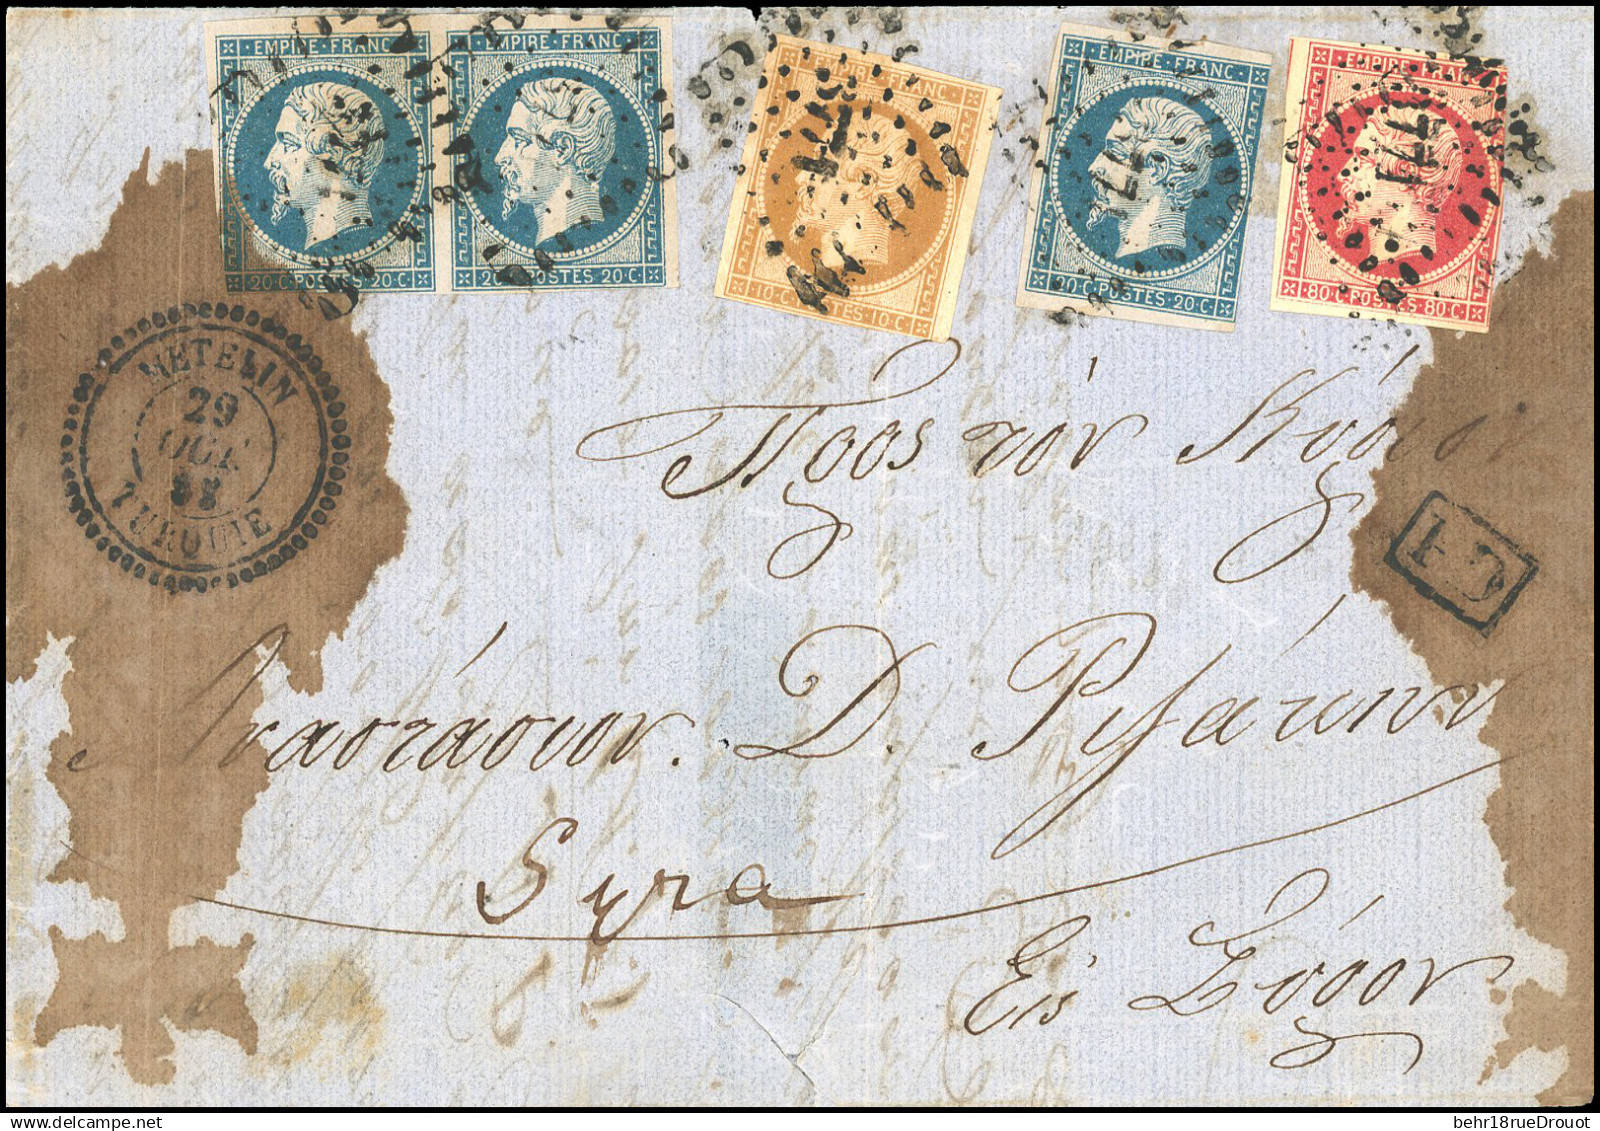 EMPIRE FRANC
EMPIRE FRANC
EMPIRE FRANC
EMPIRE FRANC
EMPIRE FRANC
20·C·POSTES·20·C·
20·C·POSTES·20·C·
10·C·POSTES·10·C·
20·C·POSTES·20·C·
80·C·POSTES·80·C·
METELIN
29
OCT.
TURQUIE
Πρὸς τὸν Κύριον
PD
Ἀναστάσιον. D. Ριζάκην
Syra
Εἰς Σύρον
behr18rueDrouot